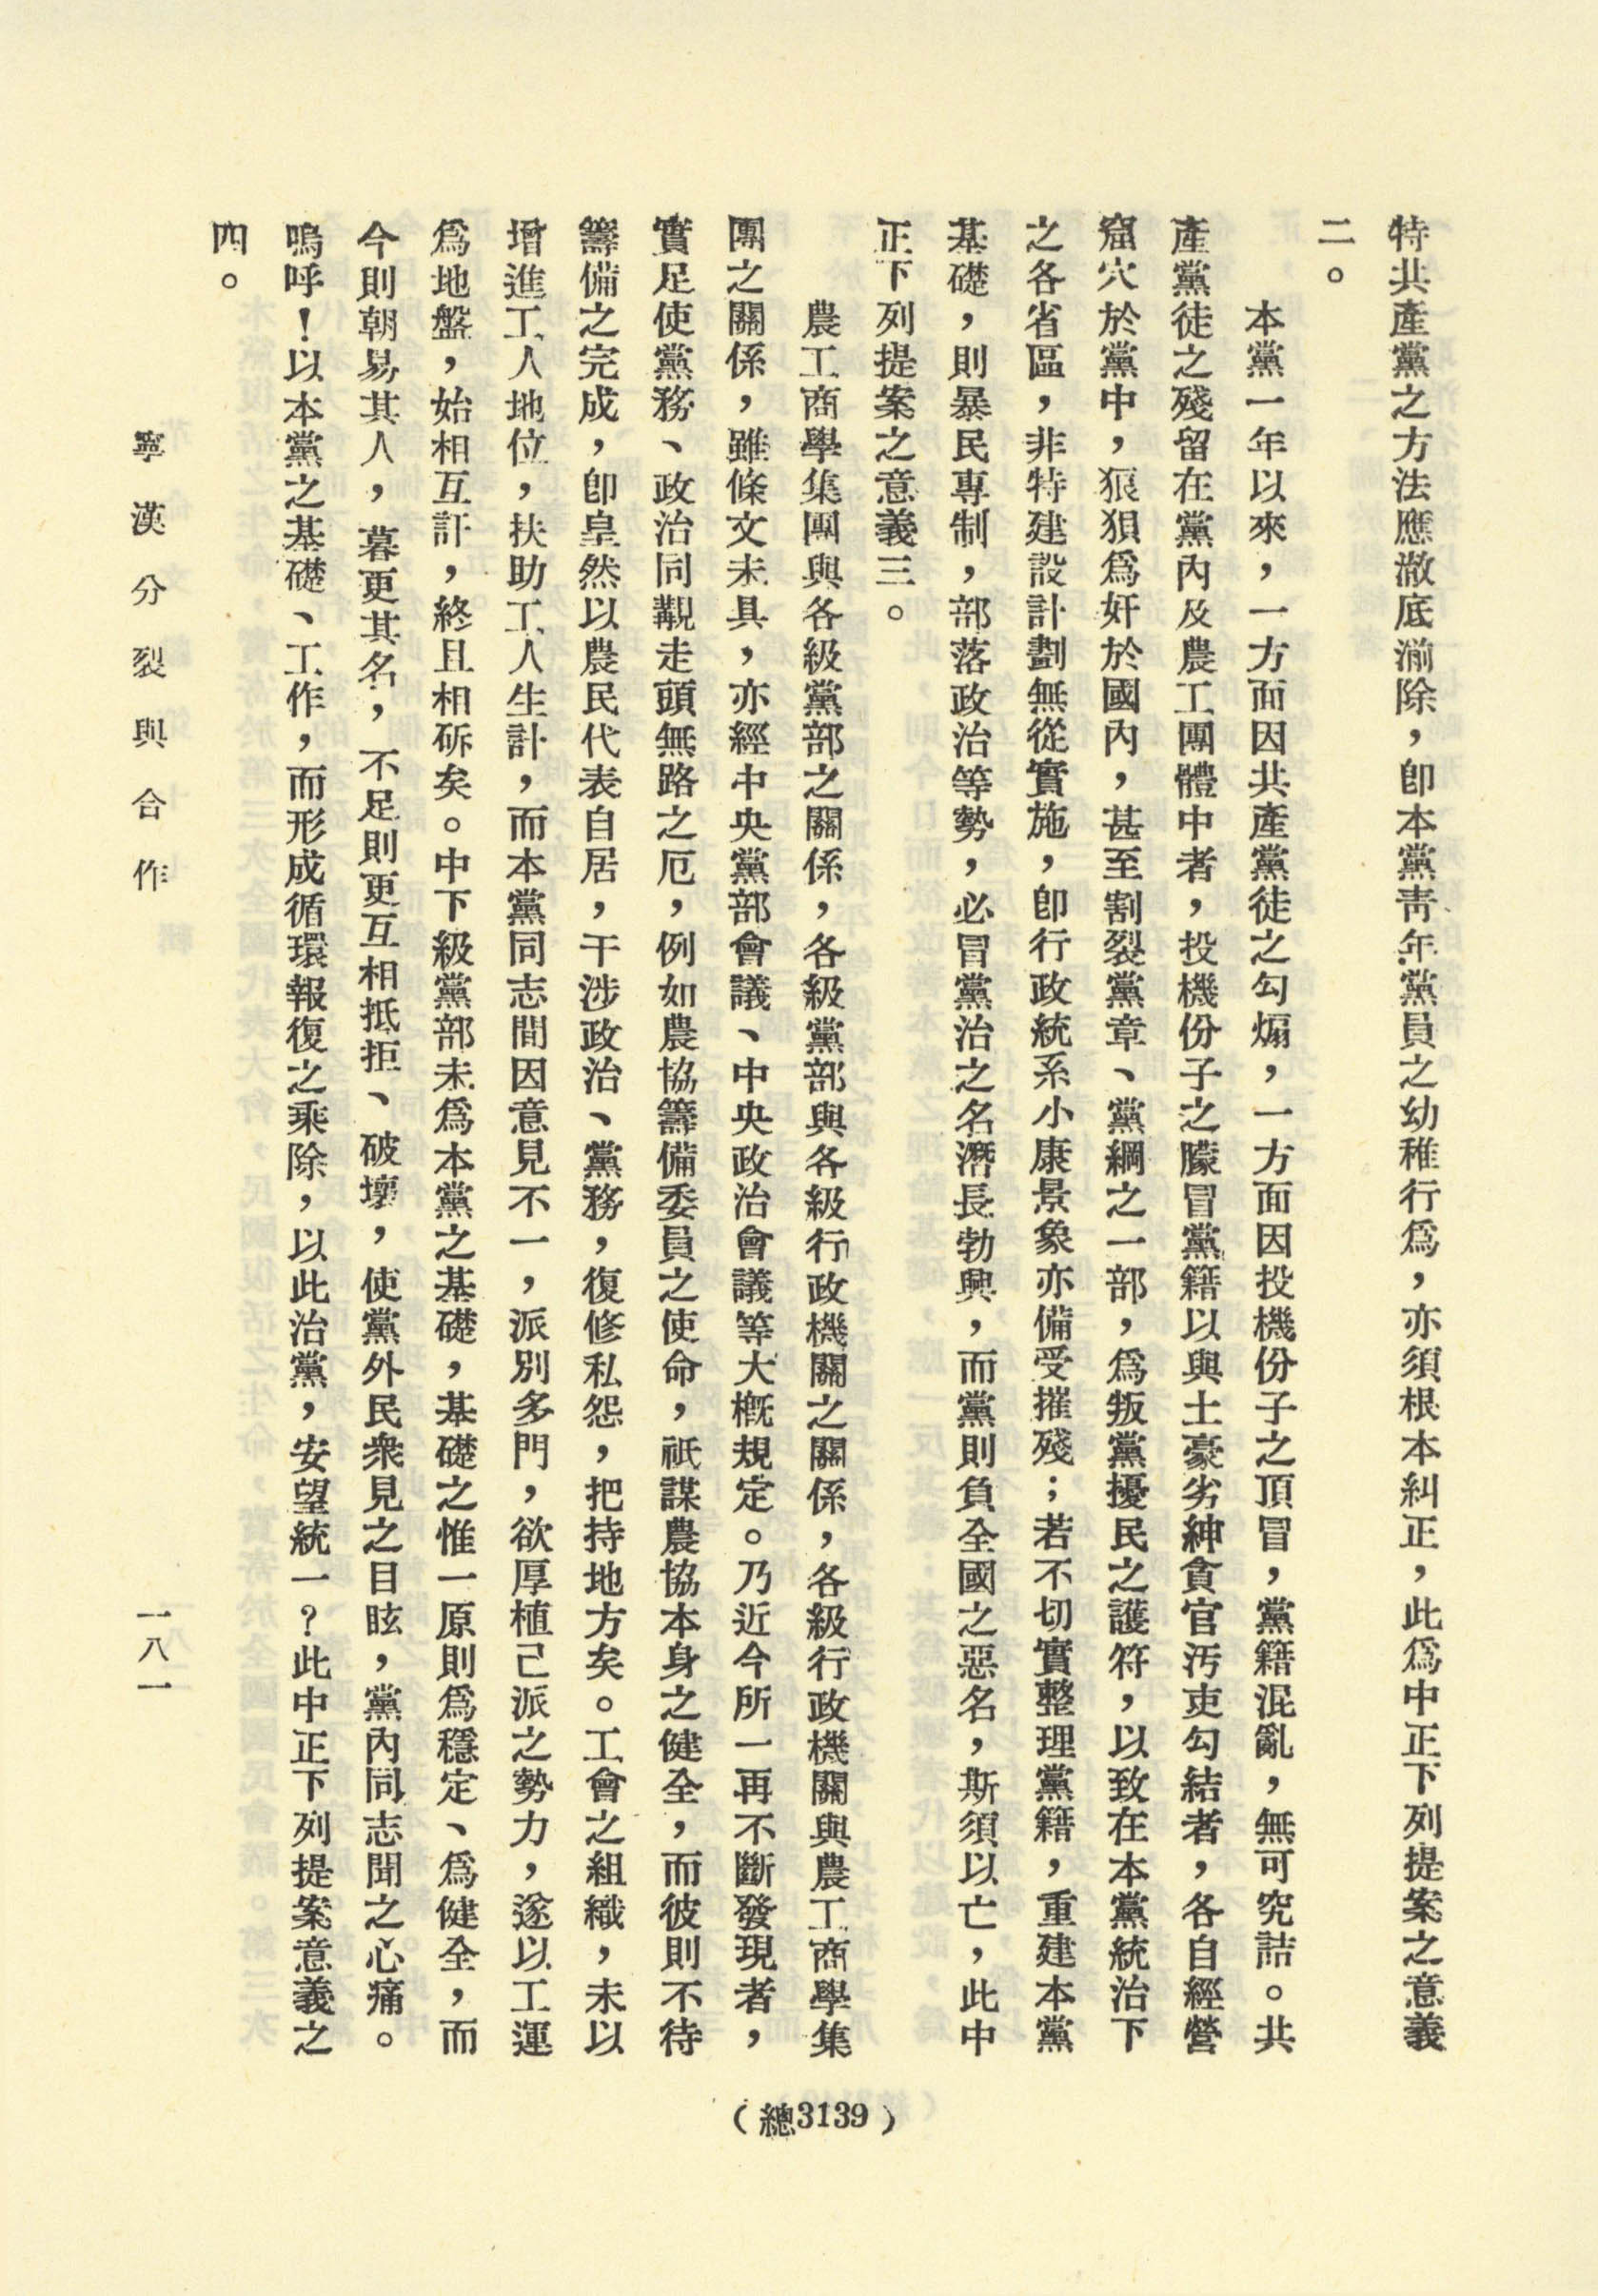 特共產黨之方法應澈底湔除，卽本黨靑年黨員之幼稚行爲，亦須根本糾正，此爲中正下列提案之意義
二。
本黨一年以來，一方面因共產黨徒之勾煽，一方面因投機份子之頂冒，黨籍混亂，無可究詰。共
產黨徒之殘留在黨內及農工團體中者，投機份子之朦冒黨籍以與土豪劣紳貪官汚吏勾結者，各自經營
窟穴於黨中，狼狽爲奸於國內，甚至割裂黨章、黨綱之一部，爲叛黨擾民之護符，以致在本黨統治下
之各省區，非特建設計劃無從實施，卽行政統系小康景象亦備受摧殘；若不切實整理黨籍，重建本黨
基礎，則暴民專制，部落政治等勢，必冒黨治之名潛長勃興，而黨則負全國之惡名，斯須以亡，此中
正下列提案之意義三。
農工商學集團與各級黨部之關係，各級黨部與各級行政機關之關係，各級行政機關與農工商學集
團之關係，雖條文未具，亦經中央黨部會議、中央政治會議等大槪規定。乃近今所一再不斷發現者，
實足使黨務、政治同覯走頭無路之厄，例如農協籌備委員之使命，祇謀農協本身之健全，而彼則不待
籌備之完成，卽皇然以農民代表自居，干涉政治、黨務，復修私怨，把持地方矣。工會之組織，未以
增進工人地位，扶助工人生計，而本黨同志間因意見不一，派別多門，欲厚植己派之勢力，遂以工運
爲地盤，始相互訐，終且相斫矣。中下級黨部未爲本黨之基礎，基礎之惟一原則爲穩定、爲健全，而
今則朝易其人，暮更其名，不足則更互相抵拒、破壞，使黨外民衆見之目眩，黨內同志聞之心痛。
嗚呼！以本黨之基礎、工作，而形成循環報復之乘除，以此治黨，安望統一？此中正下列提案意義之
四。
寧漢分裂與合作
一八一
（總3139）